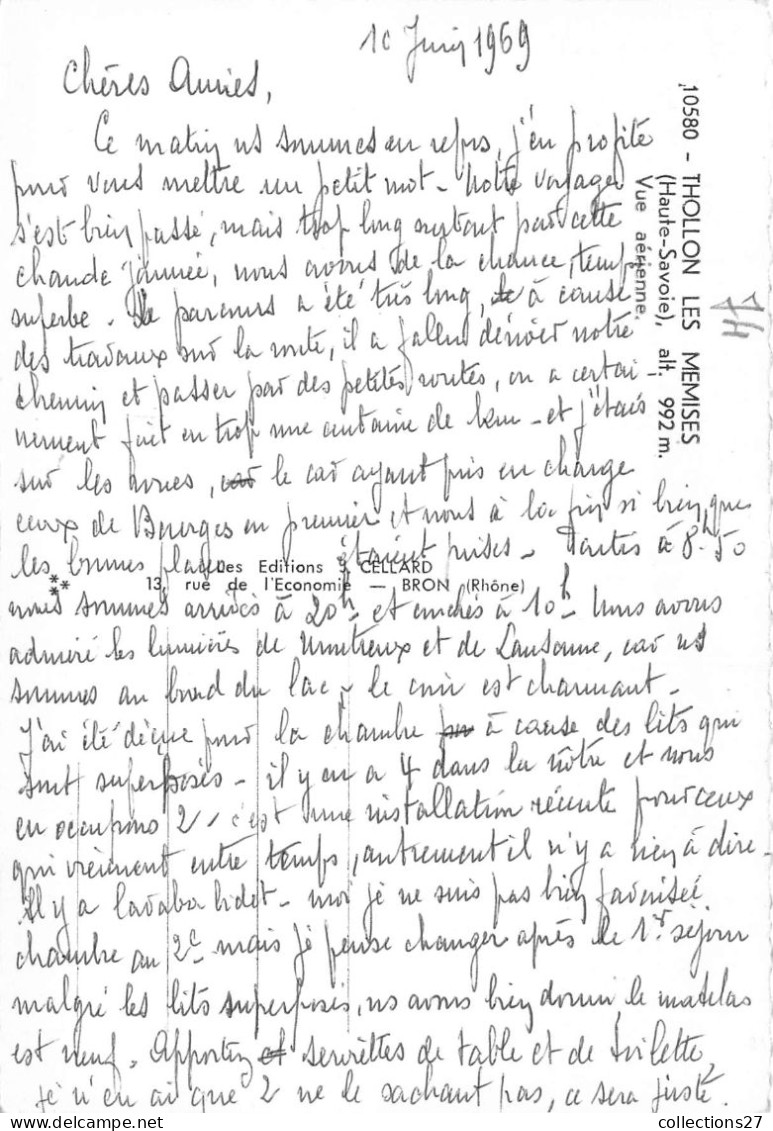 10 Juin 1969
Chères Amies,
Ce matin ns sommes en repos, j'en profite
pour vous mettre un petit mot - Notre voyage
s'est bien passé, mais trop long surtout par cette
chaude journée, nous avons de la chance, temps
superbe. Le parcours a été très long, à cause
des travaux sur la route, il a fallu dévier notre
chemin et passer par des petites routes, on a certai
nement fait en trop une centaine de km - et j'étais
sur les roues, car le car ayant pris en charge
ceux de Bourges en premier et nous à la fin si bien que
les bonnes places étaient prises - Parties à 8h50
nous sommes arrivées à 20h et couchés à 10h Nous avons
admiré les lumières de Montreux et de Lausanne, car ns
sommes au bord du lac - le coin est charmant -
J'ai été déçue pour la chambre à cause des lits qui
sont superposés - il y en a 4 dans la nôtre et nous
en occupons 2, c'est une installation récente pour ceux
qui viennent entre temps, autrement il n'y a rien à dire -
Il y a lavabo bidet - moi je ne suis pas bien favorisée
chambre au 2e mais je pense changer après le 1er séjour
malgré les lits superposés, ns avons bien dormi, le matelas
est neuf. Apportez serviettes de table et de toilette
je n'en ai que 2 ne le sachant pas, ce sera juste.
10580 - THOLLON LES MEMISES
(Haute-Savoie), alt. 992 m.
Vue aérienne.
74
Les Editions J. CELLARD
13, rue de l'Economie — BRON (Rhône)
collections27